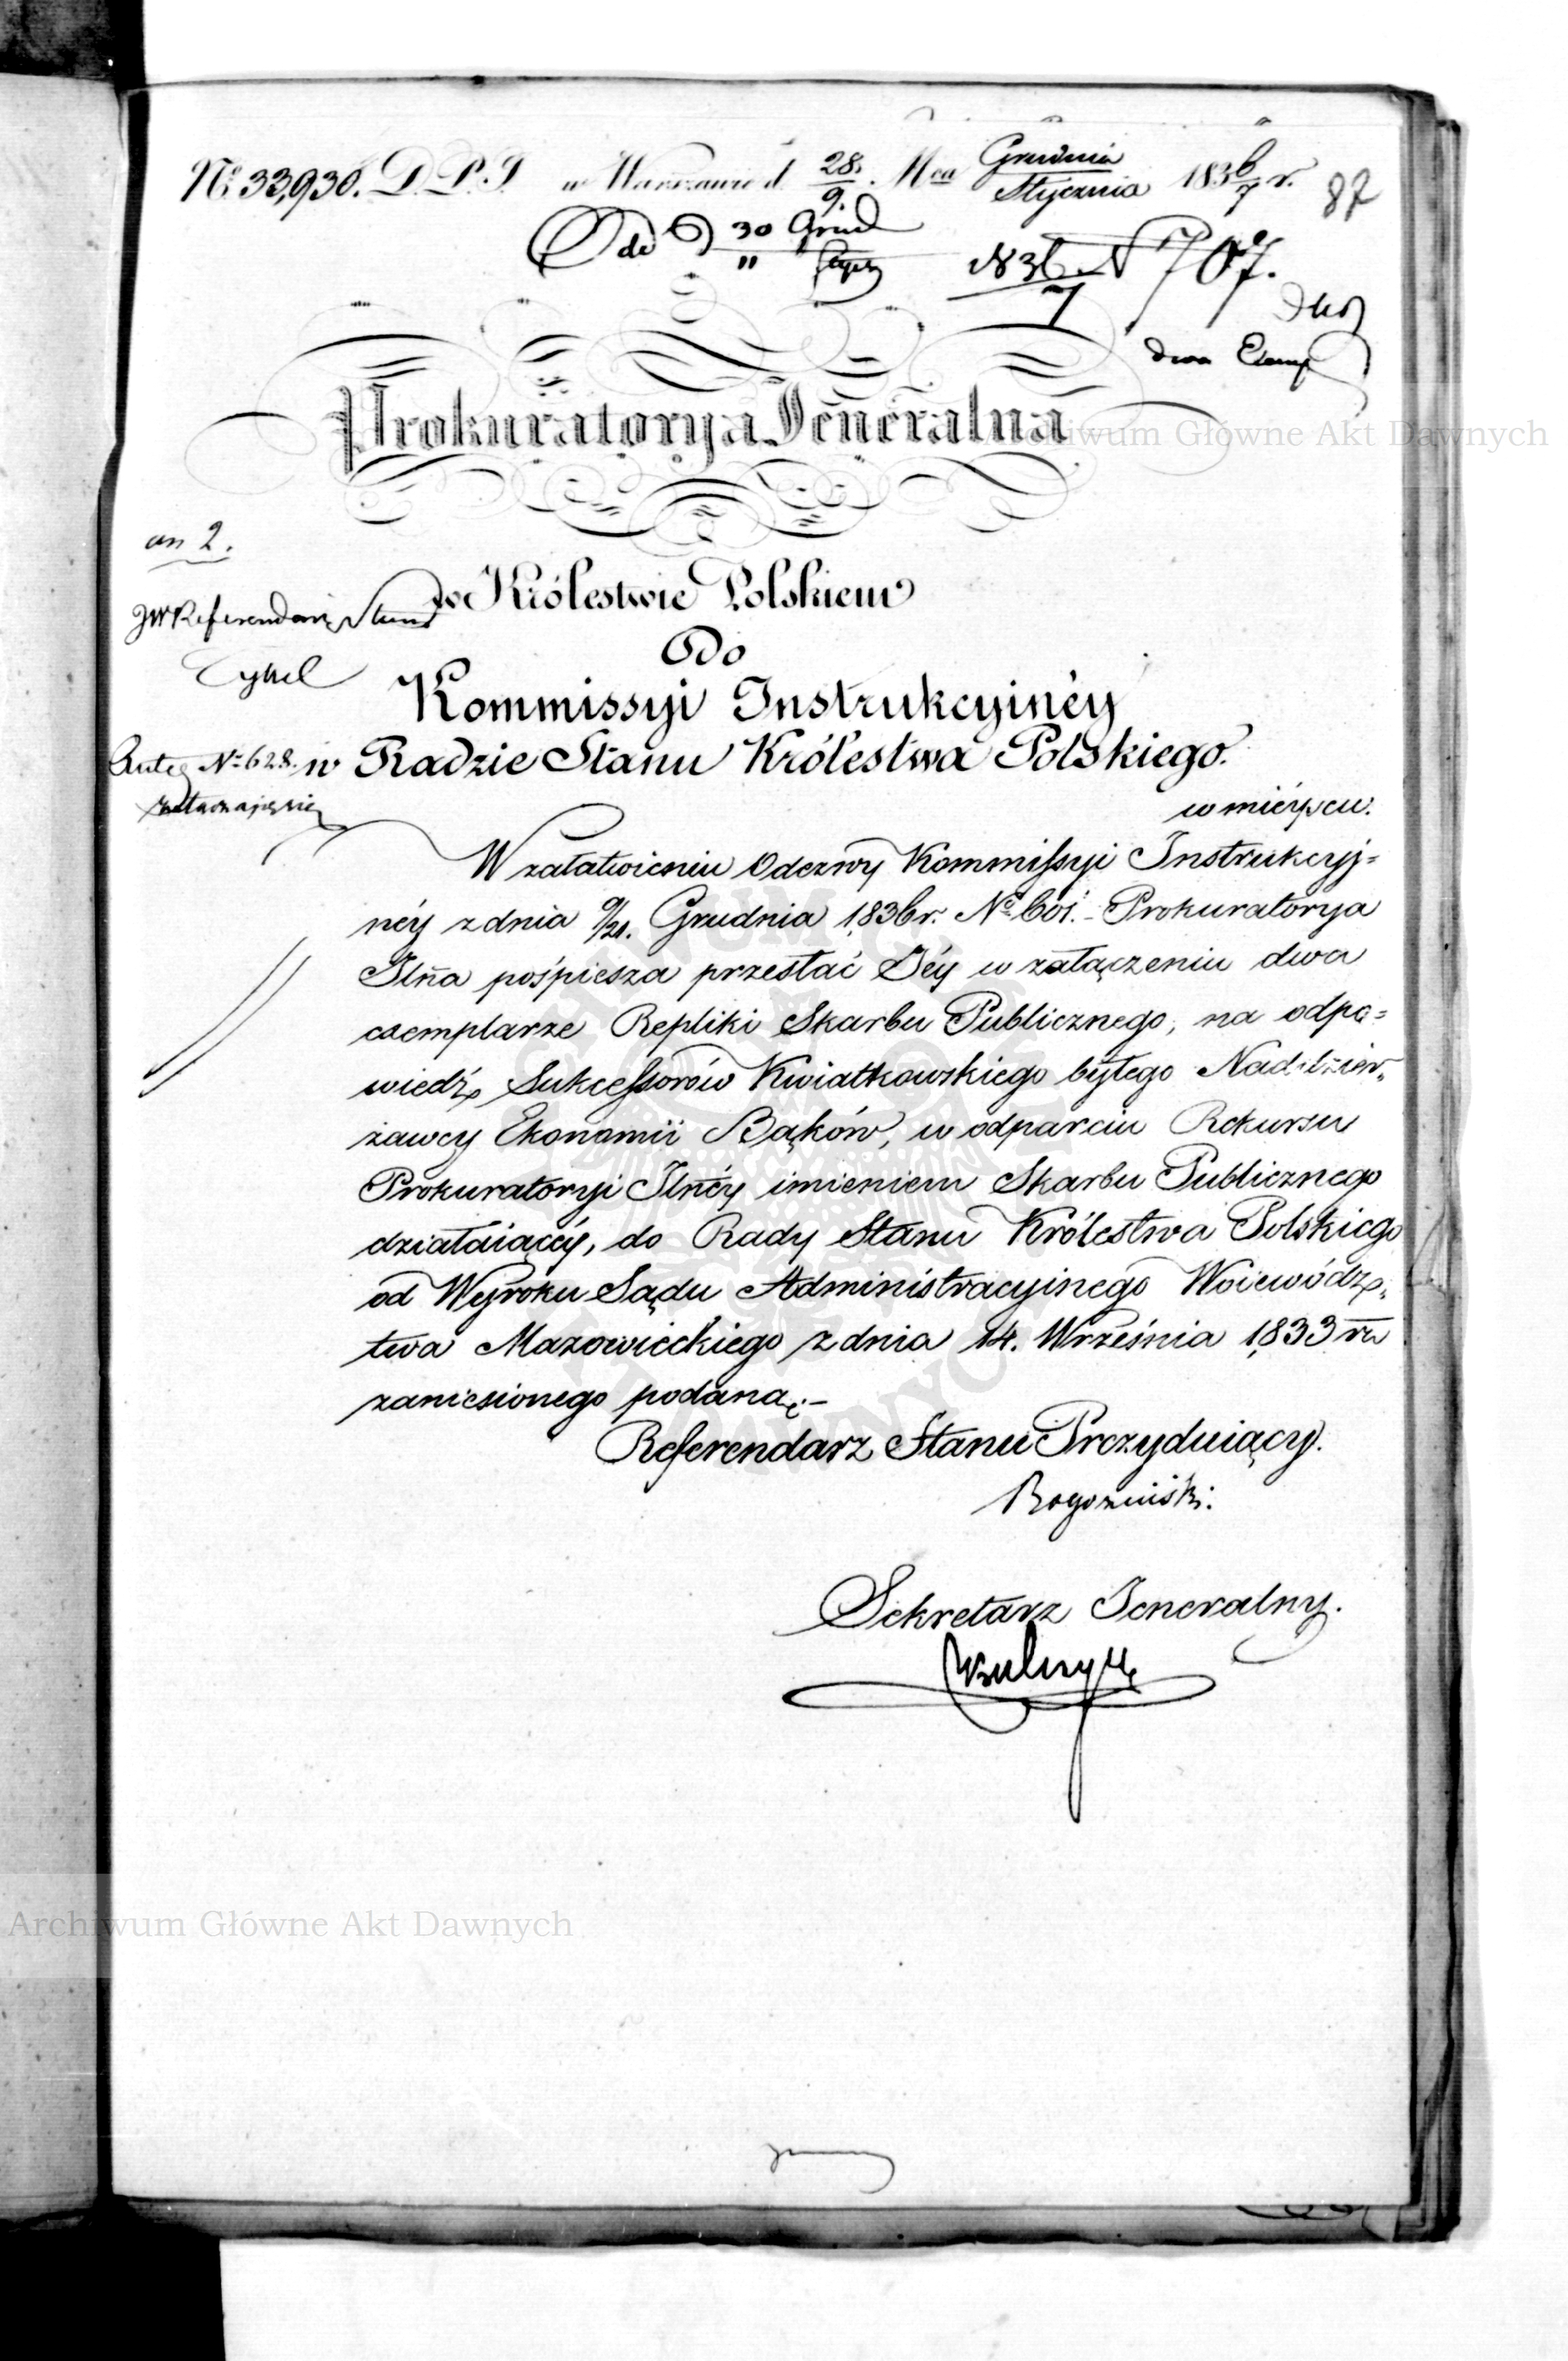 N<sup>o</sup> 33,930. D. P. J. w Warszawie d. 28./9. Mca Grudnia/Stycznia 1836/7 r. 87
Ode D 30 Grud/" Stycz 1836/7 N 707.
dwa Exemp
Prokuratorya Jeneralna
an 2.
w Królestwie Polskiem
JW Referendarz Stanu
Do
Cykel
Kommissyi Instrukcyinéy
Ante N<sup>o</sup> 628.
w Radzie Stanu Królestwa Polskiego.
załączają się
w mieyscu.
W załatwieniu Odezwy Kommissyi Instrukcyj=
néy z dnia 9/21. Grudnia 1836 r. N<sup>o</sup> 601. Prokuratorya
Jlna pośpiesza przesłać Jéy w załączeniu dwa
exemplarze Repliki Skarbu Publicznego, na odpo=
wiedź Sukcessorów Kwiatkowskiego byłego Naddzier„
żawcy Ekonomii Bąków, w odparciu Rekursu
Prokuratoryi Jlnéy imieniem Skarbu Publicznego
działaiącéy, do Rady Stanu Królestwa Polskiego
od Wyroku Sądu Administracyinego Woiewódz„
twa Mazowieckiego z dnia 14. Września 1833 ru
zaniesionego podaną.-
Referendarz Stanu Prezyduiący.
Rogoziński.
Sekretarz Jeneralny.
Archiwum Główne Akt Dawnych
Archiwum Główne Akt Dawnych